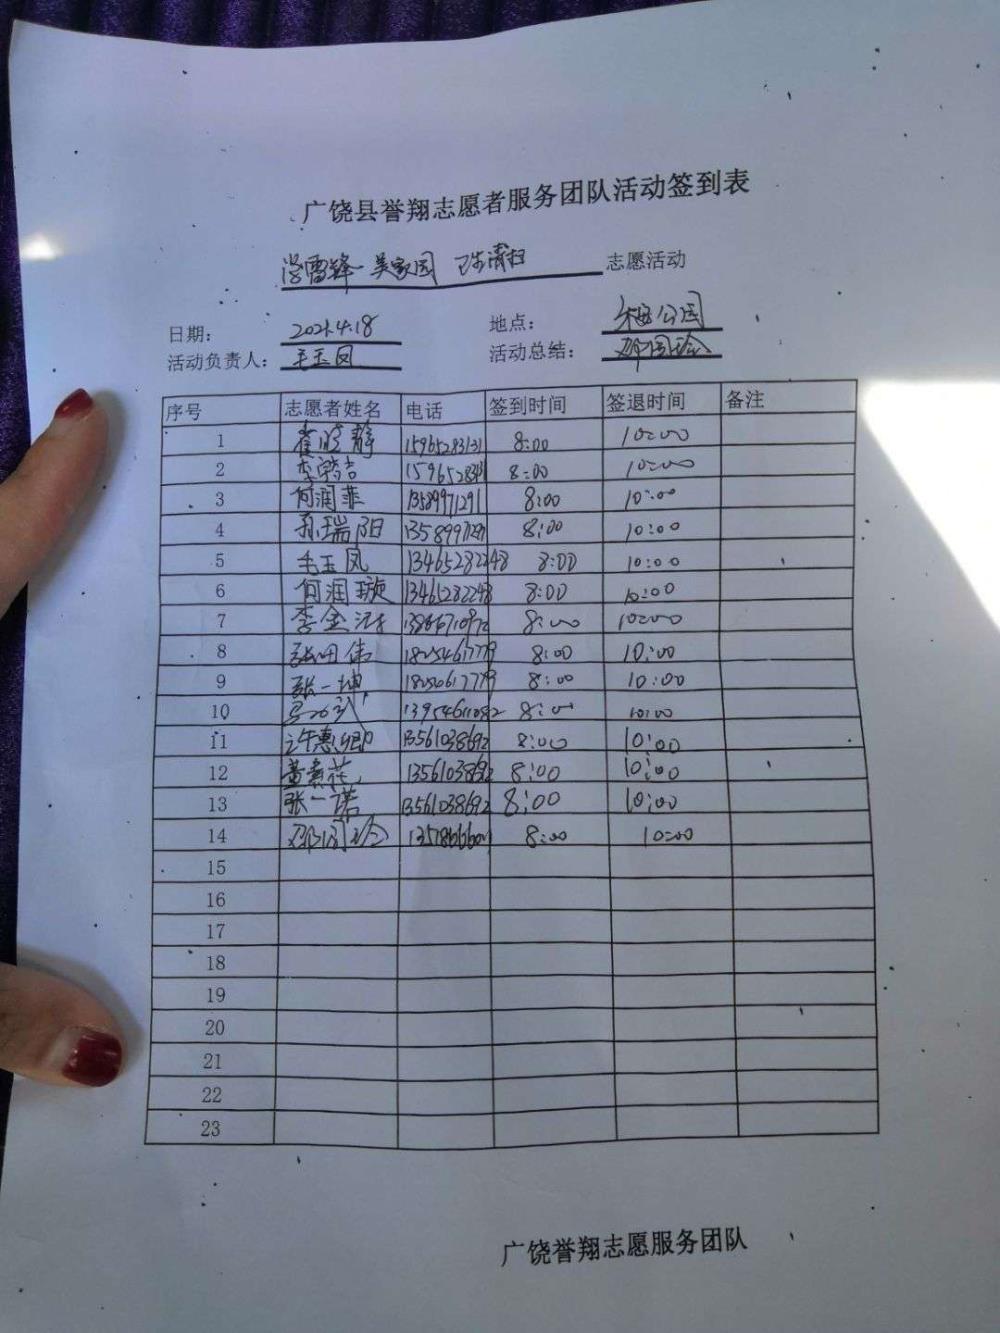 广饶县誉翔志愿者服务团队活动签到表
学雷锋 美家园 卫生清扫 志愿活动
日期： 2021.4.18 地点： 公园
活动负责人： 毛玉凤 活动总结： 邓国珍
序号 志愿者姓名 电话 签到时间 签退时间 备注
1 崔晓静 15965283131 8:00 10:00
2 李浩吉 8:00 10:00
3 何润菲 13589971291 8:00 10:00
4 孙瑞阳 13589971291 8:00 10:00
5 毛玉凤 13465282248 8:00 10:00
6 何润璇 13465282248 8:00 10:00
7 李金 8:00 10:00
8 张 伟 18254617779 8:00 10:00
9 张一坤 18254617779 8:00 10:00
10 8:00 10:00
11 许惠卿 13561038692 8:00 10:00
12 黄素花 13561038692 8:00 10:00
13 张一诺 13561038692 8:00 10:00
14 邓国珍 8:00 10:00
15
16
17
18
19
20
21
22
23
广饶誉翔志愿服务团队